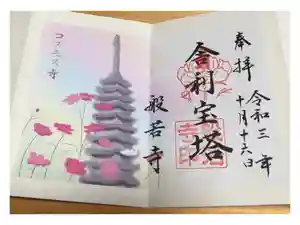 奉拝
令和三年
十月十六日
舎利宝塔
般若寺
コスモス寺